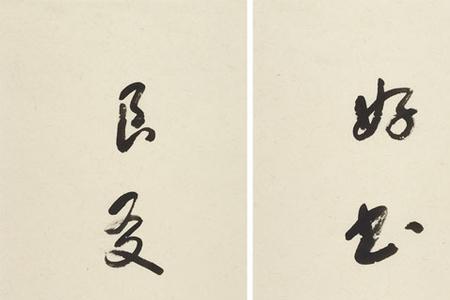 好書
良友